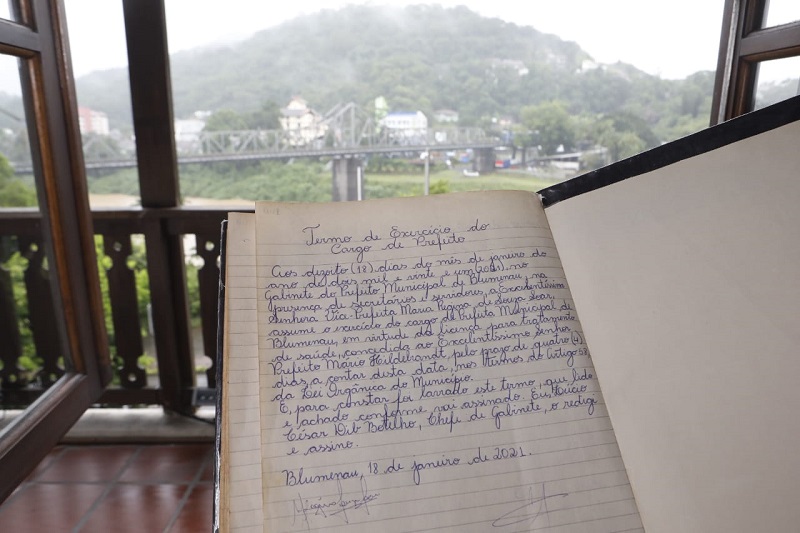 Termo de Exercício do
Cargo de Prefeito
Aos dezoito (18) dias do mês de janeiro do
ano de dois mil e vinte e um (2021), no
Gabinete do Prefeito Municipal de Blumenau, na
presença de secretários e servidores, a Excelentíssima
Senhora Vice-Prefeita Maria Regina de Souza Soar,
assume o exercício do cargo de Prefeita Municipal de
Blumenau, em virtude da licença para tratamento
de saúde, concedida ao Excelentíssimo Senhor
Prefeito Mário Hildebrandt, pelo prazo de quatro (4)
dias, a contar desta data, nos termos do Artigo
da Lei Orgânica do Município.
E, para constar foi lavrado este termo, que lido
e achado conforme, vai assinado. Eu,
César Botelho, Chefe de Gabinete, o redigi
e assino.
Blumenau, 18 de janeiro de 2021.